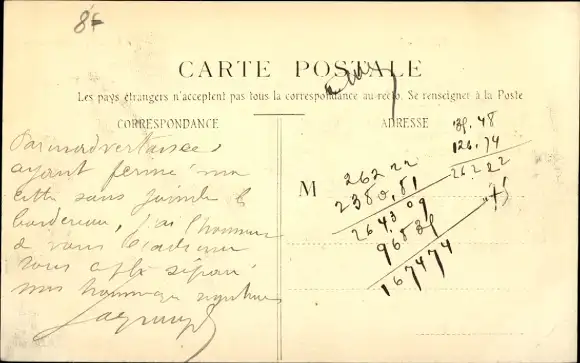 8
CARTE POSTALE
Les pays étrangers n'acceptent pas tous la correspondance au recto. Se renseigner à la Poste
CORRESPONDANCE
Par inadvertance,
ayant fermé ma
lettre sans joindre le
bordereau, j'ai l'honneur
de vous l'adresser
sous pli séparé
mes hommages
ADRESSE
M
126.74
26222
262 22
2380,81
2643 09
167474